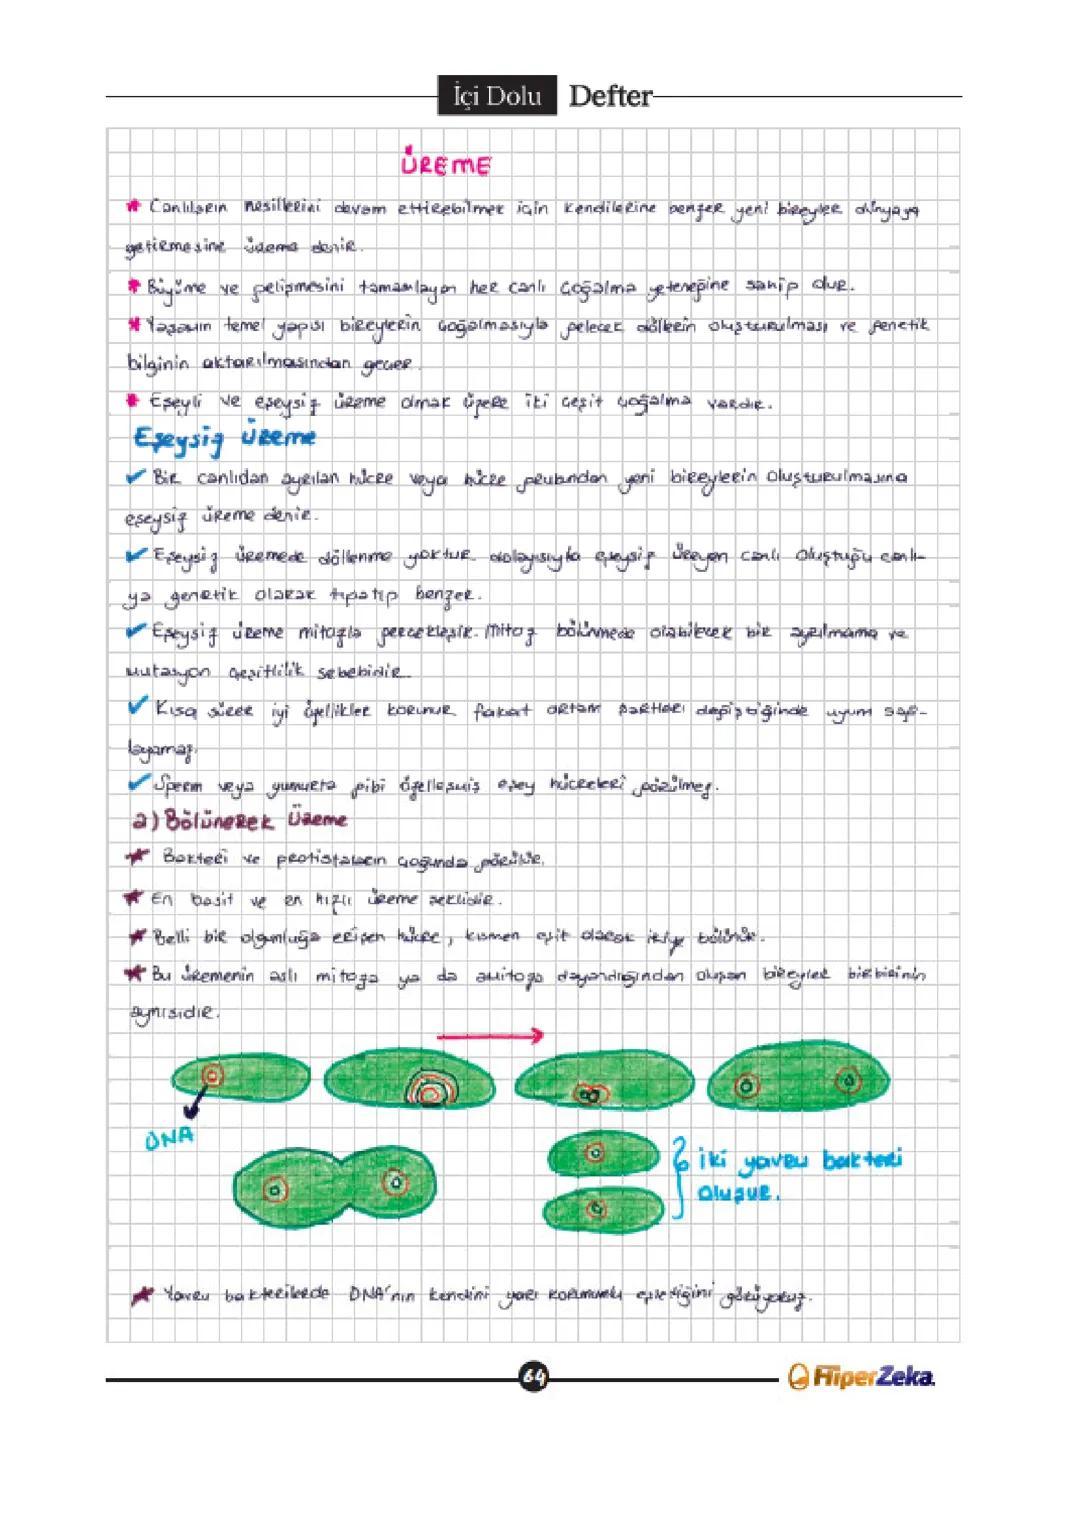 İçi Dolu Defter
ÜREME
Canlıların nesillerini devam ettirebilmek için kendilerine benzer yeni bireyler dünyaya
getirmesine üreme denir.
Büyüme ve gelişmesini tamamlayan her canlı çoğalma yeteneğine sahip olur.
Yaşamın temel yapısı bireylerin çoğalmasıyla gelecek döllerin oluşturulması ve genetik
bilginin aktarılmasından geçer.
Eşeyli ve eşeysiz üreme olmak üzere iki çeşit çoğalma vardır.
Eşeysiz üreme
Bir canlıdan ayrılan hücre veya hücre grubundan yeni bireylerin oluşturulmasına
eşeysiz üreme denir.
Eşeysiz üremede döllenme yoktur dolayısıyla eşeysiz üreyen canlı oluştuğu canlı-
ya genetik olarak tıpatıp benzer.
Eşeysiz üreme mitozla gerçekleşir. Mitoz bölünmede olabilecek bir ayrılmama ve
mutasyon çeşitlilik sebebidir.
Kısa sürer iyi özellikler korunur fakat ortam şartları değiştiğinde uyum sağ-
layamaz.
Sperm veya yumurta gibi özelleşmiş eşey hücreleri görülmez.
a) Bölünerek Üreme
Bakteri ve protistaların çoğunda görülür.
En basit ve en hızlı üreme şeklidir.
Belli bir olgunluğa erişen hücre, kısmen eşit olarak ikiye bölünür.
Bu üremenin aslı mitoza ya da amitoza dayandığından oluşan bireyler birbirinin
aynısıdır.
DNA
İki yavru bakteri
oluşur.
Yavru bakterilerde DNA'nın kendini yarı korunumlu eşlediğini görüyoruz.
64
HiperZeka